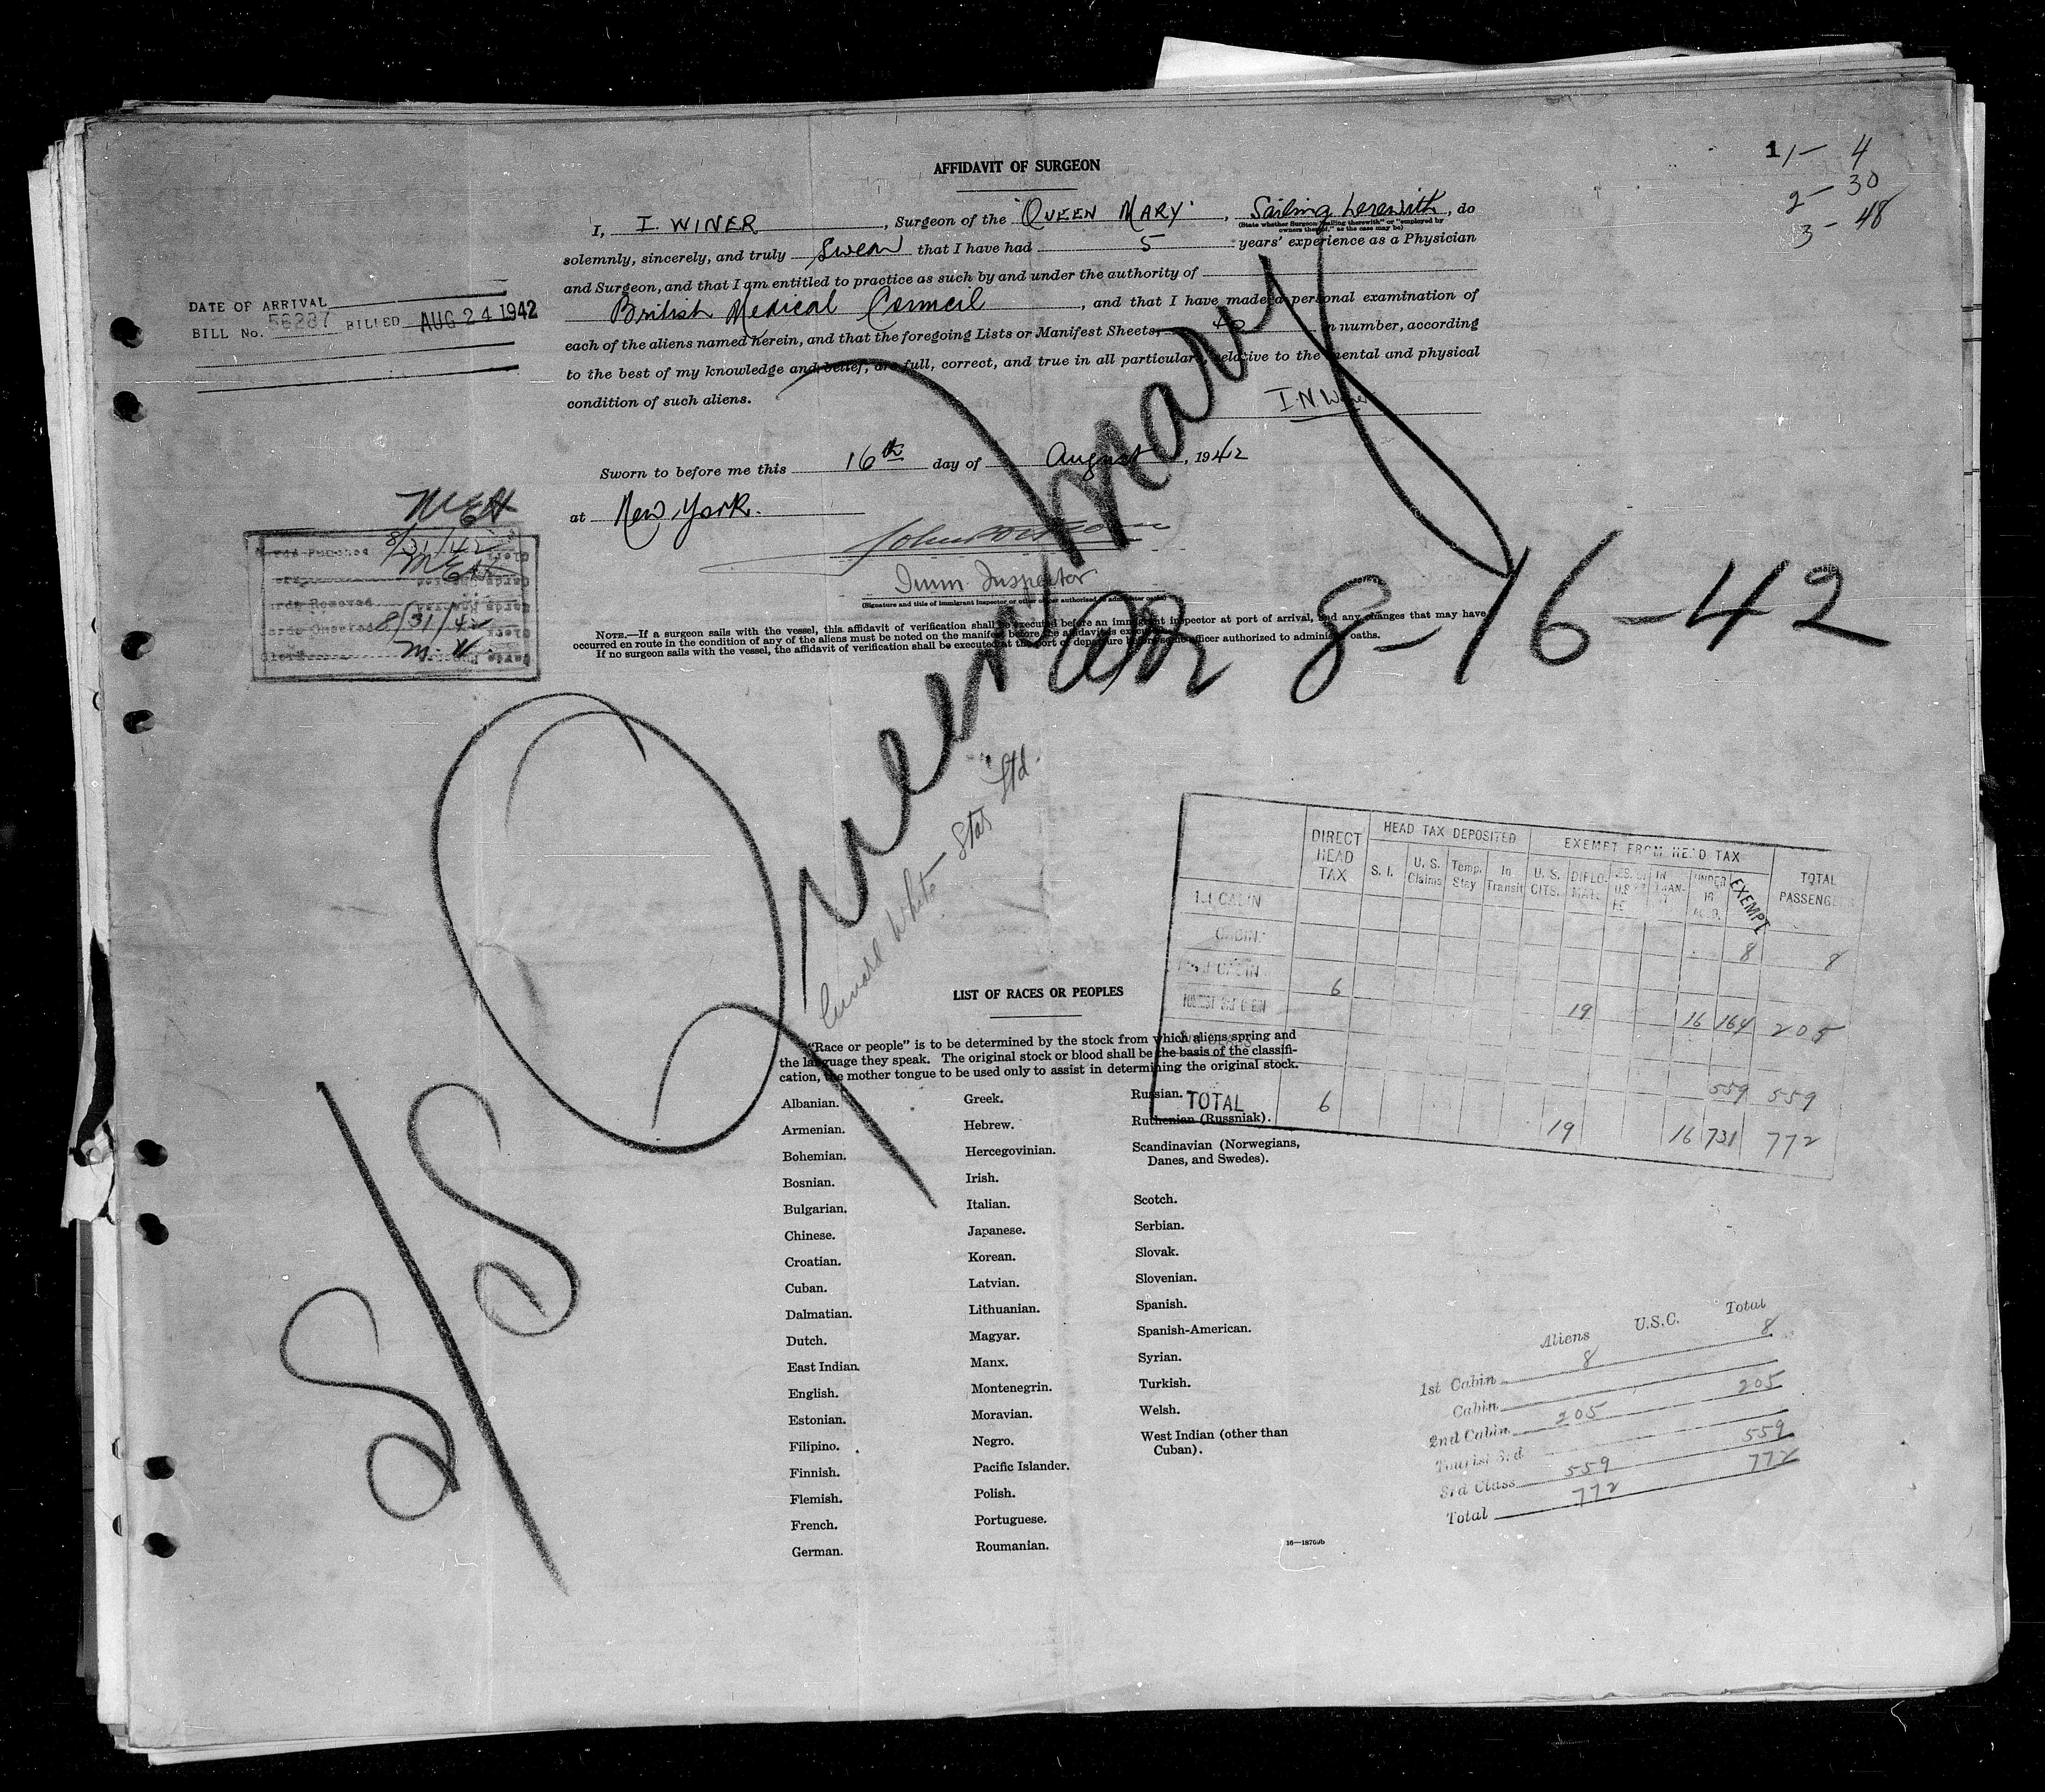 AFFIDAVIT OF SURGEON
1 1 – 4
2 – 30
3 – 48
I, I. WINER, Surgeon of the "QUEEN MARY", Sailing herewith, do
(State whether Surgeon "sailing therewith" or "employed by
owners thereof," as the case may be)
solemnly, sincerely, and truly Swear that I have had 5 years' experience as a Physician
and Surgeon, and that I am entitled to practice as such by and under the authority of
British Medical Council, and that I have made a personal examination of
each of the aliens named herein, and that the foregoing Lists or Manifest Sheets, in number, according
to the best of my knowledge and belief, are full, correct, and true in all particulars relative to the mental and physical
condition of such aliens.
I. N. Winer
DATE OF ARRIVAL
BILL No. 56287 BILLED AUG 24 1942
Sworn to before me this 16th day of August, 1942
at New York.
Imm. Inspector
(Signature and title of immigrant inspector or other officer authorized to administer oaths)
NOTE.—If a surgeon sails with the vessel, this affidavit of verification shall be executed before an immigrant inspector at port of arrival, and any changes that may have
occurred en route in the condition of any of the aliens must be noted on the manifest before the affidavit is executed
If no surgeon sails with the vessel, the affidavit of verification shall be executed at the port of departure before some officer authorized to administer oaths.
MEH
Cards Punched 8/31/42
MEH
Cards Removed
8/31/42
M. H.
S/S Queen Mary
arr 8-16-42
Cunard White Star Ltd.
DIRECT HEAD TAX
HEAD TAX DEPOSITED
EXEMPT FROM HEAD TAX
TOTAL PASSENGERS
S. I. U. S. Claims Temp. Stay In Transit U. S. CITS. DIPLO-MATS IN TRAN-IT UNDER 16 ACCD. EXEMPT
1st CABIN 8 8
CABIN
2nd CABIN 6 19 16 164 205
TOURIST 3rd CABIN
559 559
TOTAL 6 19 16 731 772
LIST OF RACES OR PEOPLES
"Race or people" is to be determined by the stock from which aliens spring and
the language they speak. The original stock or blood shall be the basis of the classifi-
cation, the mother tongue to be used only to assist in determining the original stock.
Albanian.
Armenian.
Bohemian.
Bosnian.
Bulgarian.
Chinese.
Croatian.
Cuban.
Dalmatian.
Dutch.
East Indian.
English.
Estonian.
Filipino.
Finnish.
Flemish.
French.
German.
Greek.
Hebrew.
Hercegovinian.
Irish.
Italian.
Japanese.
Korean.
Latvian.
Lithuanian.
Magyar.
Manx.
Montenegrin.
Moravian.
Negro.
Pacific Islander.
Polish.
Portuguese.
Roumanian.
Russian.
Ruthenian (Russniak).
Scandinavian (Norwegians,
Danes, and Swedes).
Scotch.
Serbian.
Slovak.
Slovenian.
Spanish.
Spanish-American.
Syrian.
Turkish.
Welsh.
West Indian (other than
Cuban).
Aliens U.S.C. Total
1st Cabin 8 8
Cabin
2nd Cabin 205 205
Tourist 3rd
3rd Class 559 559
Total 772 772
16—18769b